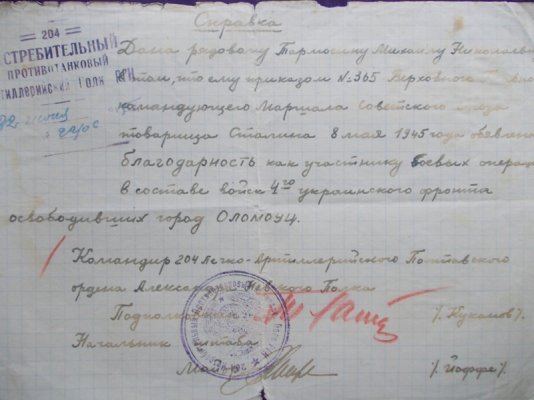 Справка
204
СТРЕБИТЕЛЬНЫЙ
ПРОТИВОТАНКОВЫЙ
Дана рядовому Тармосину Михаилу Николаеви
в том, что ему приказом № 365 Верховного
командующего Маршала Советского
товарища Сталина 8 мая 1945 года объявлена
благодарность как участнику боевых операц
в составе войск 4го украинского фронта
освободивших город Оломоуц.
Командир 204 Легко-Артиллерийского Полтавского
ордена Александра Невского Полка
Подпол /Кукапов/.
Начальник штаба
Майор /Иоффе/.